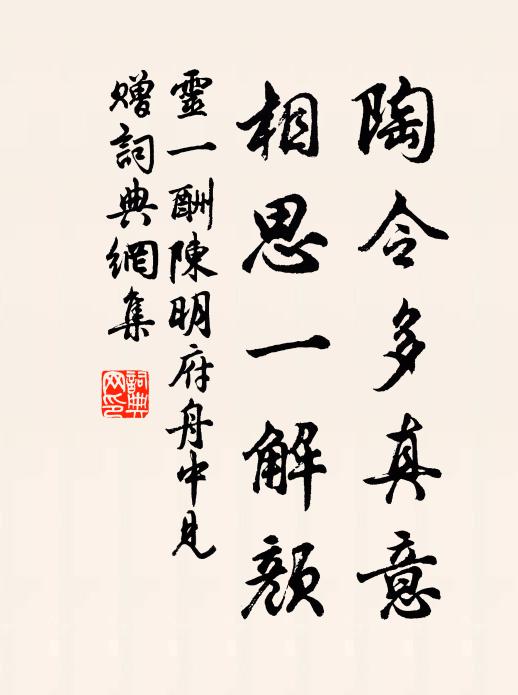 陶令多真意
相思一解顏
靈一酬陳明府舟中見
贈詞典網集
詞典
网印